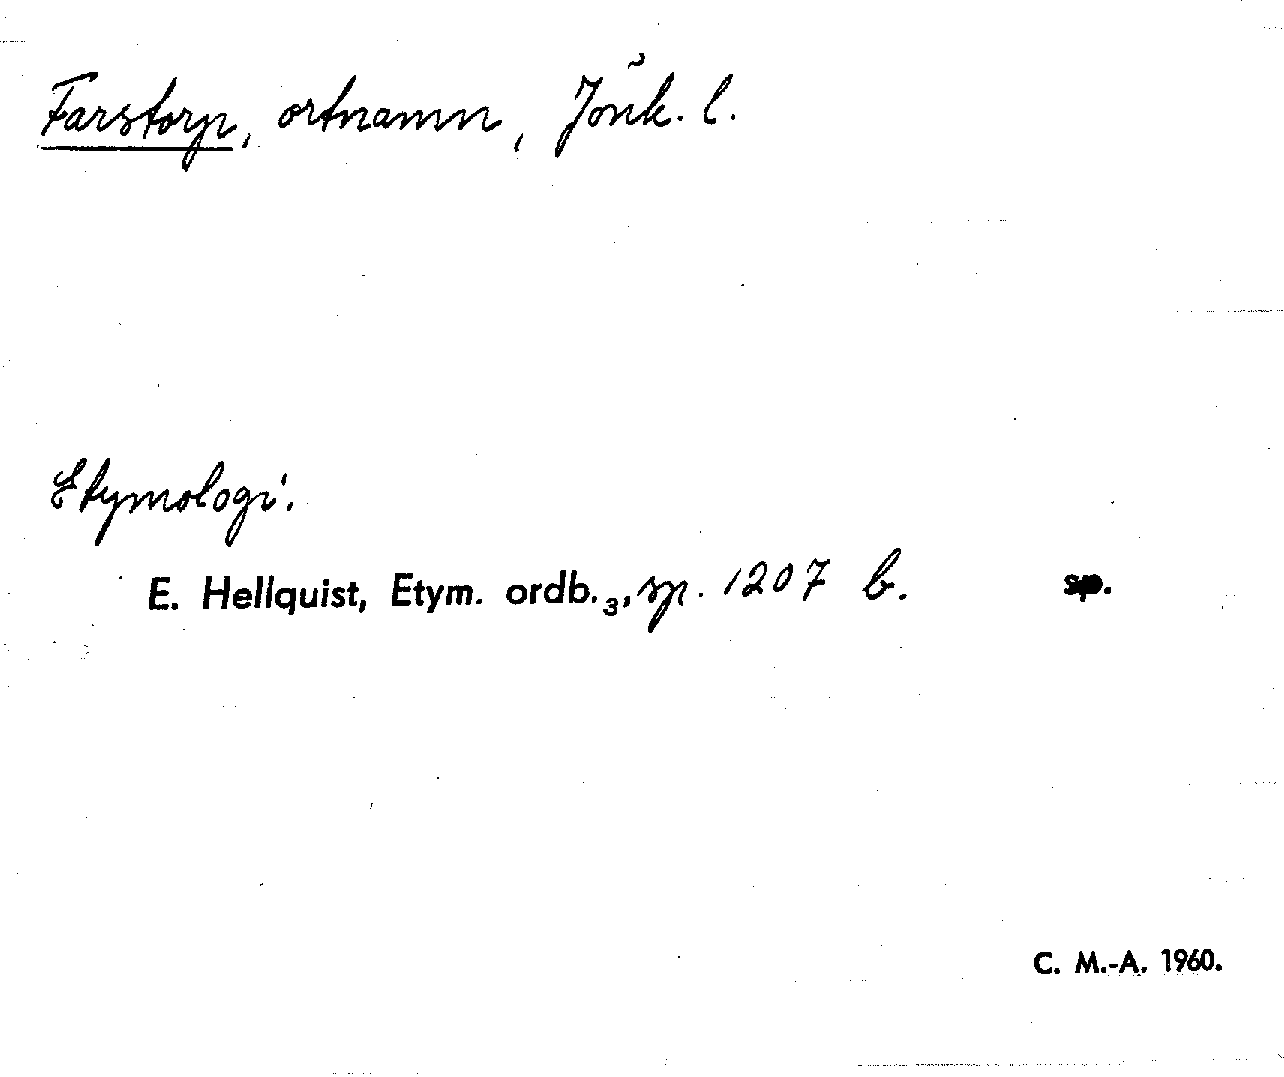 Farstorp, ortnamn, Jönk. l.
Etymologi.
E. Hellquist, Etym. ordb.₃, sp. 1207 b. sp.
C. M.-A. 1960.